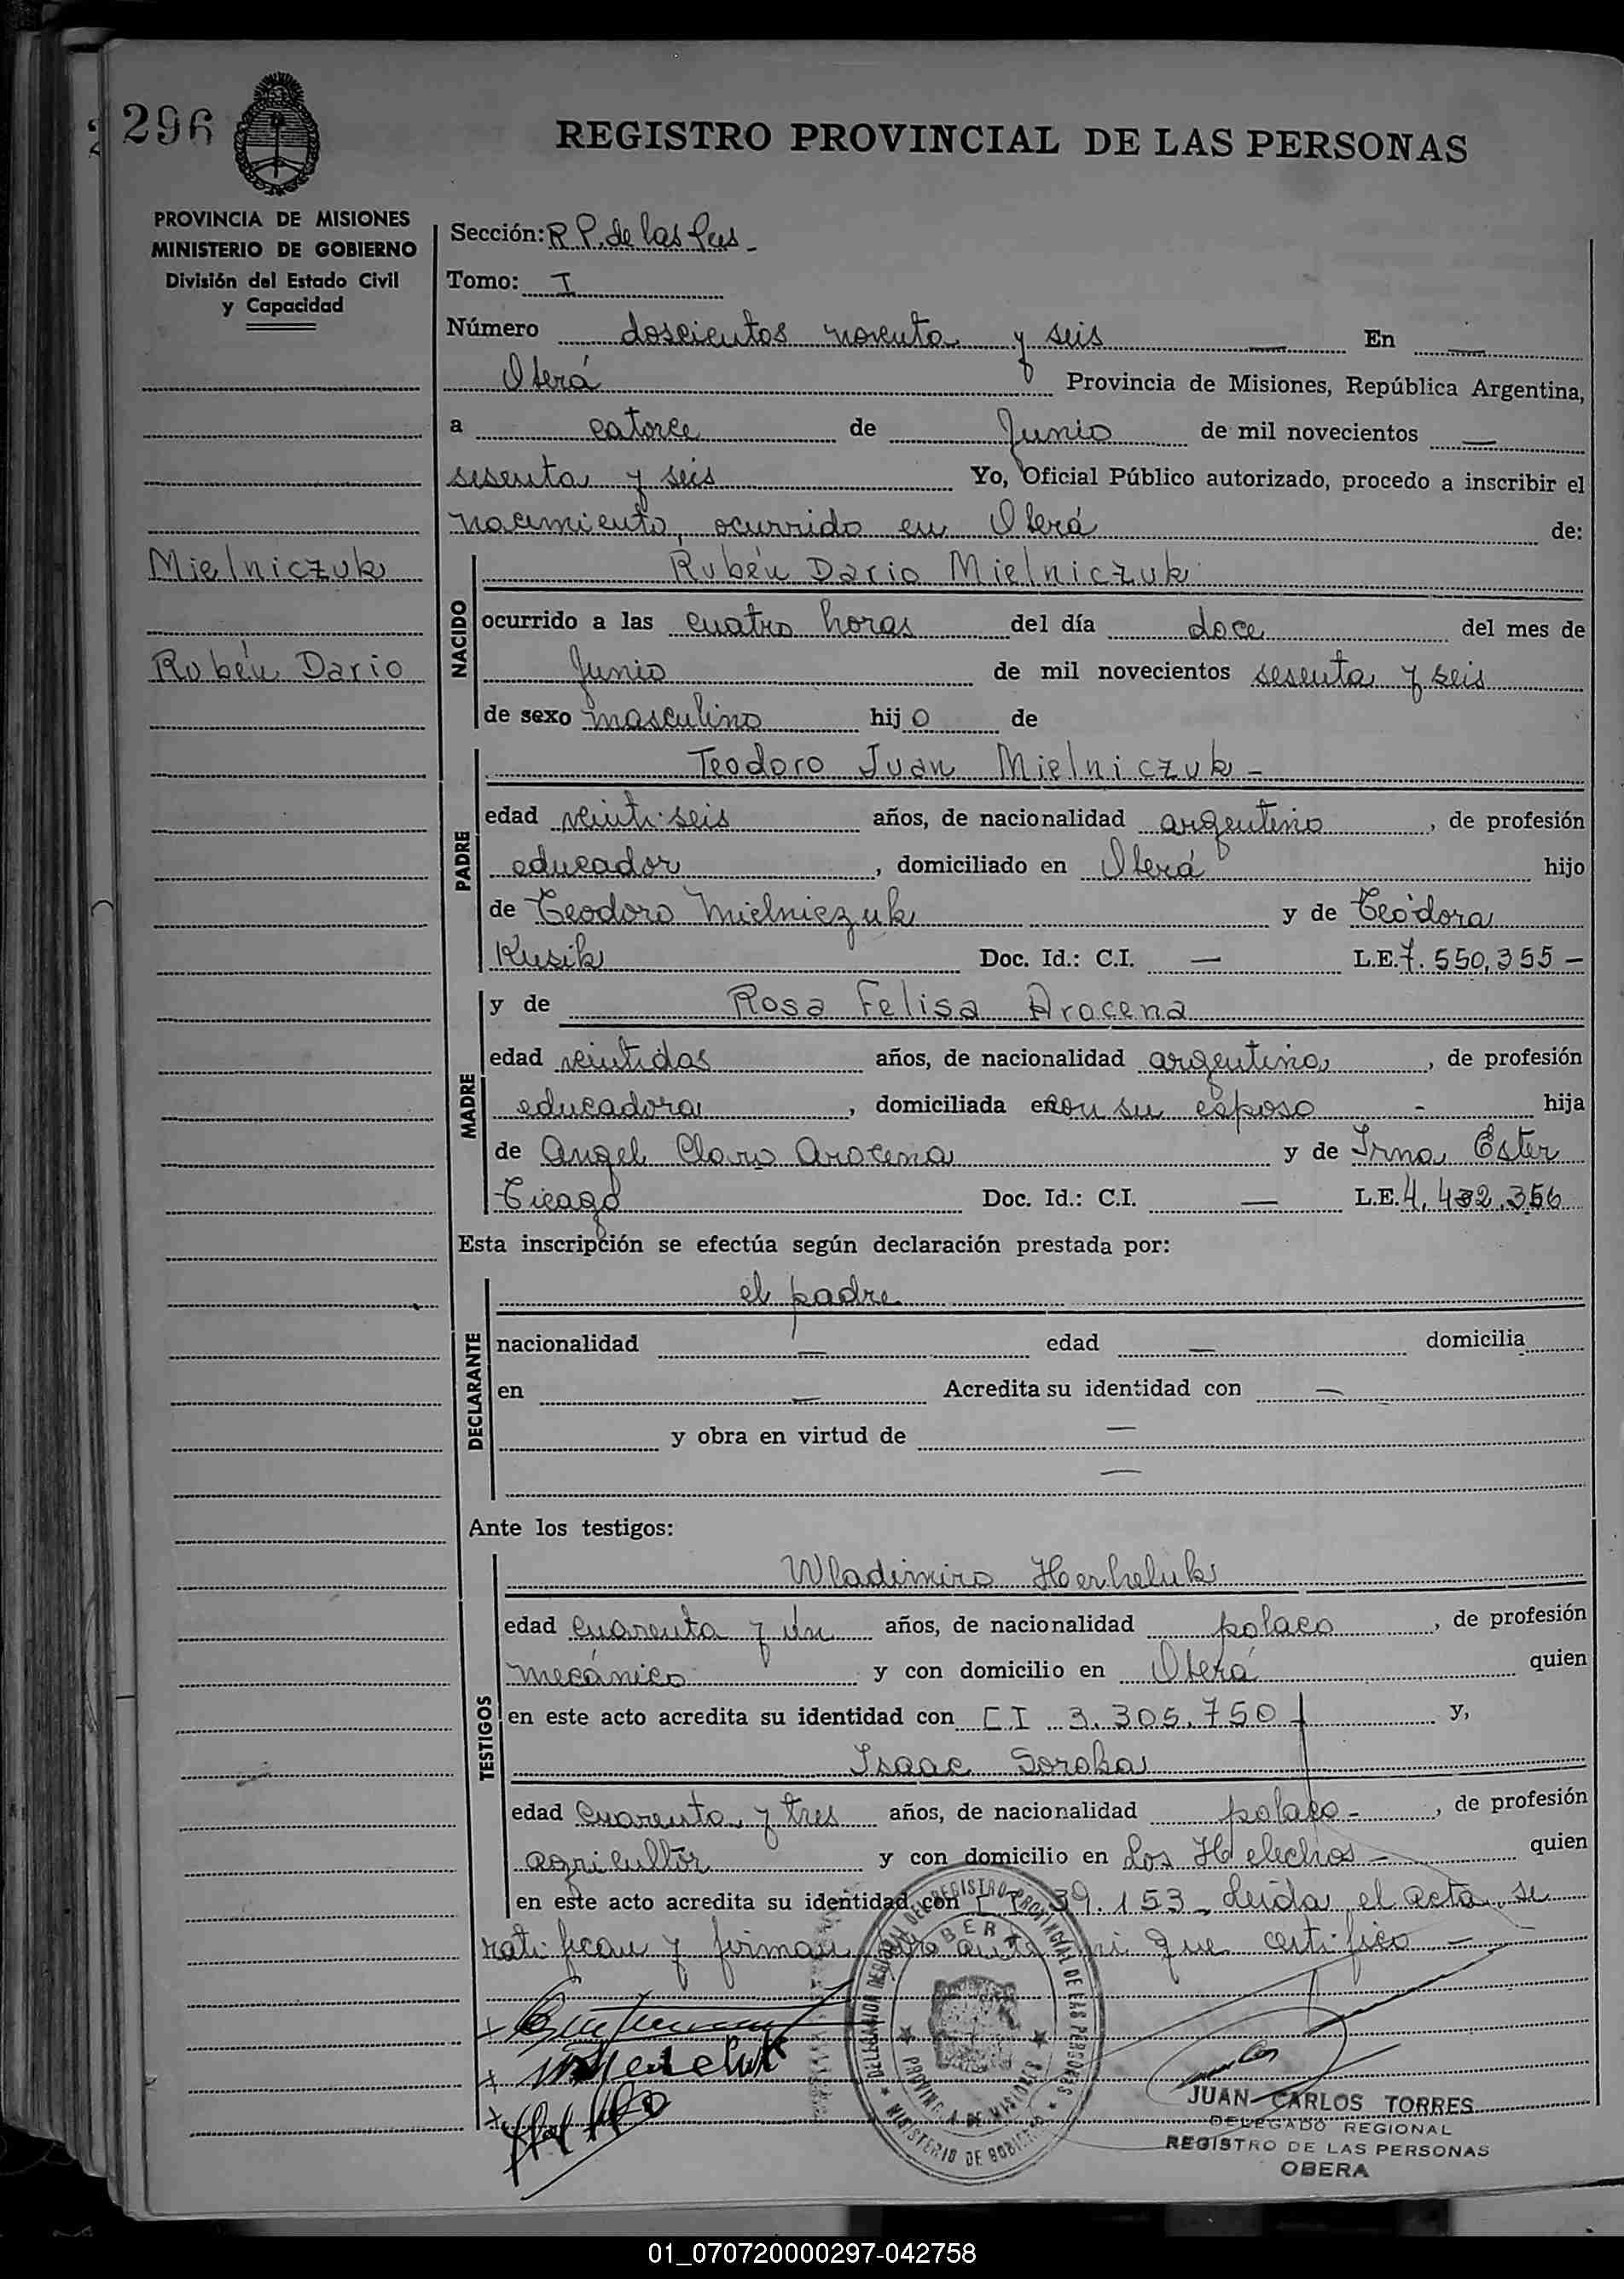 296
REGISTRO PROVINCIAL DE LAS PERSONAS
PROVINCIA DE MISIONES
MINISTERIO DE GOBIERNO
División del Estado Civil
y Capacidad
Mielniczuk
Rubén Dario
Sección: R P. de las Pers -
Tomo: I
Número doscientos noventa y seis — En —
Oberá Provincia de Misiones, República Argentina,
a catorce de Junio de mil novecientos —
sesenta y seis Yo, Oficial Público autorizado, procedo a inscribir el
nacimiento, ocurrido en Oberá de:
NACIDO
Rubén Dario Mielniczuk
ocurrido a las cuatro horas del día doce del mes de
Junio de mil novecientos sesenta y seis
de sexo masculino hijo de
PADRE
Teodoro Juan Mielniczuk -
edad veinti seis años, de nacionalidad argentino, de profesión
educador, domiciliado en Oberá hijo
de Teodoro Mielniczuk y de Teodora
Kusik Doc. Id.: C.I. — L.E. 7.550,355 -
MADRE
y de Rosa Felisa Arocena
edad veintidos años, de nacionalidad argentina, de profesión
educadora, domiciliada con su esposo - hija
de Angel Claro Arocena y de Irma Ester
Doc. Id.: C.I. — L.E. 4.432.356
Esta inscripción se efectúa según declaración prestada por:
DECLARANTE
el padre
nacionalidad — edad — domicilia
en — Acredita su identidad con —
y obra en virtud de —
—
Ante los testigos:
TESTIGOS
Wladimiro Herheluk
edad cuarenta y un años, de nacionalidad polaco, de profesión
mecánico y con domicilio en Oberá quien
en este acto acredita su identidad con CI 3.305.750 y,
Isaac Soroka
edad cuarenta y tres años, de nacionalidad polaco -, de profesión
agricultor y con domicilio en Los Helechos - quien
en este acto acredita su identidad con 39.153 - Leida el acta se
ratifican y firman ante mi que certifico -
DELEGACION REGIONAL DEL REGISTRO PROVINCIAL DE LAS PERSONAS
OBERA
PROVINCIA DE MISIONES
MINISTERIO DE GOBIERNO
JUAN CARLOS TORRES
DELEGADO REGIONAL
REGISTRO DE LAS PERSONAS
OBERA
01_070720000297-042758